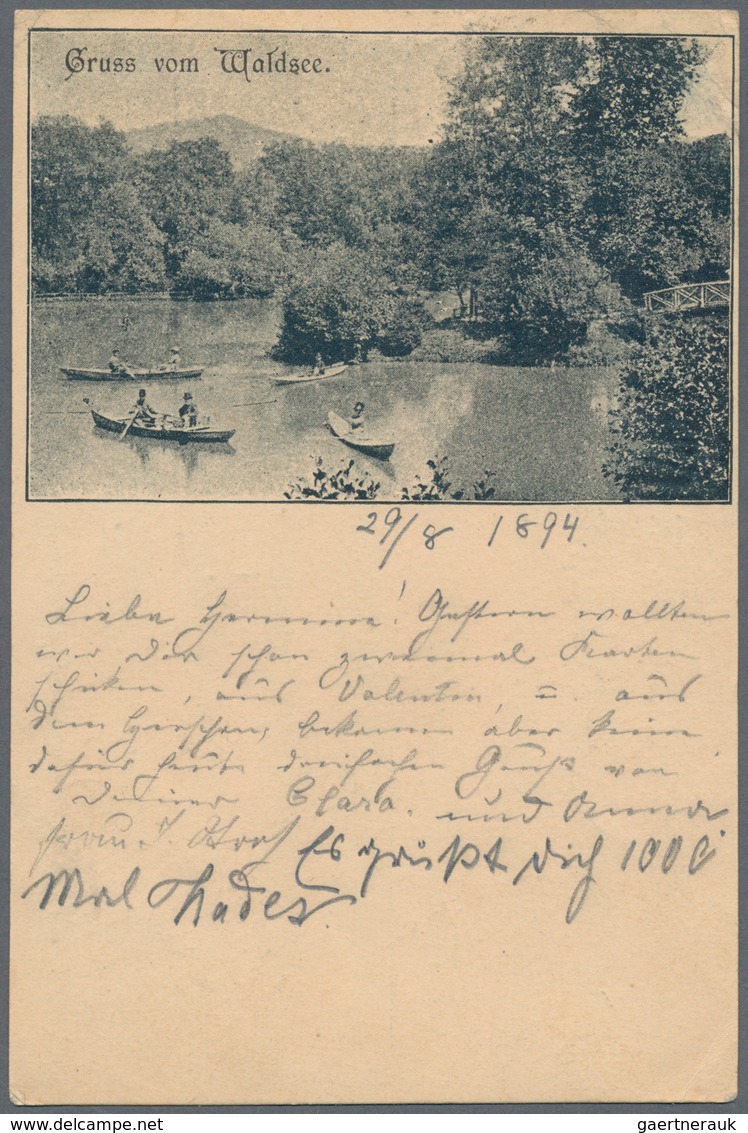 Gruss vom Waldsee.
29/8 1894.
Liebe Hermine! Gestern wollten
wir Dir schon zweimal Karten
schicken, aus Valentin, u. aus
dem Hirschen, bekamen aber keine
dafür heute dreifachen Gruß von
Deiner Clara. und Anna
Frau J. Es grüßt dich 1000
Mal
gaertnerauk